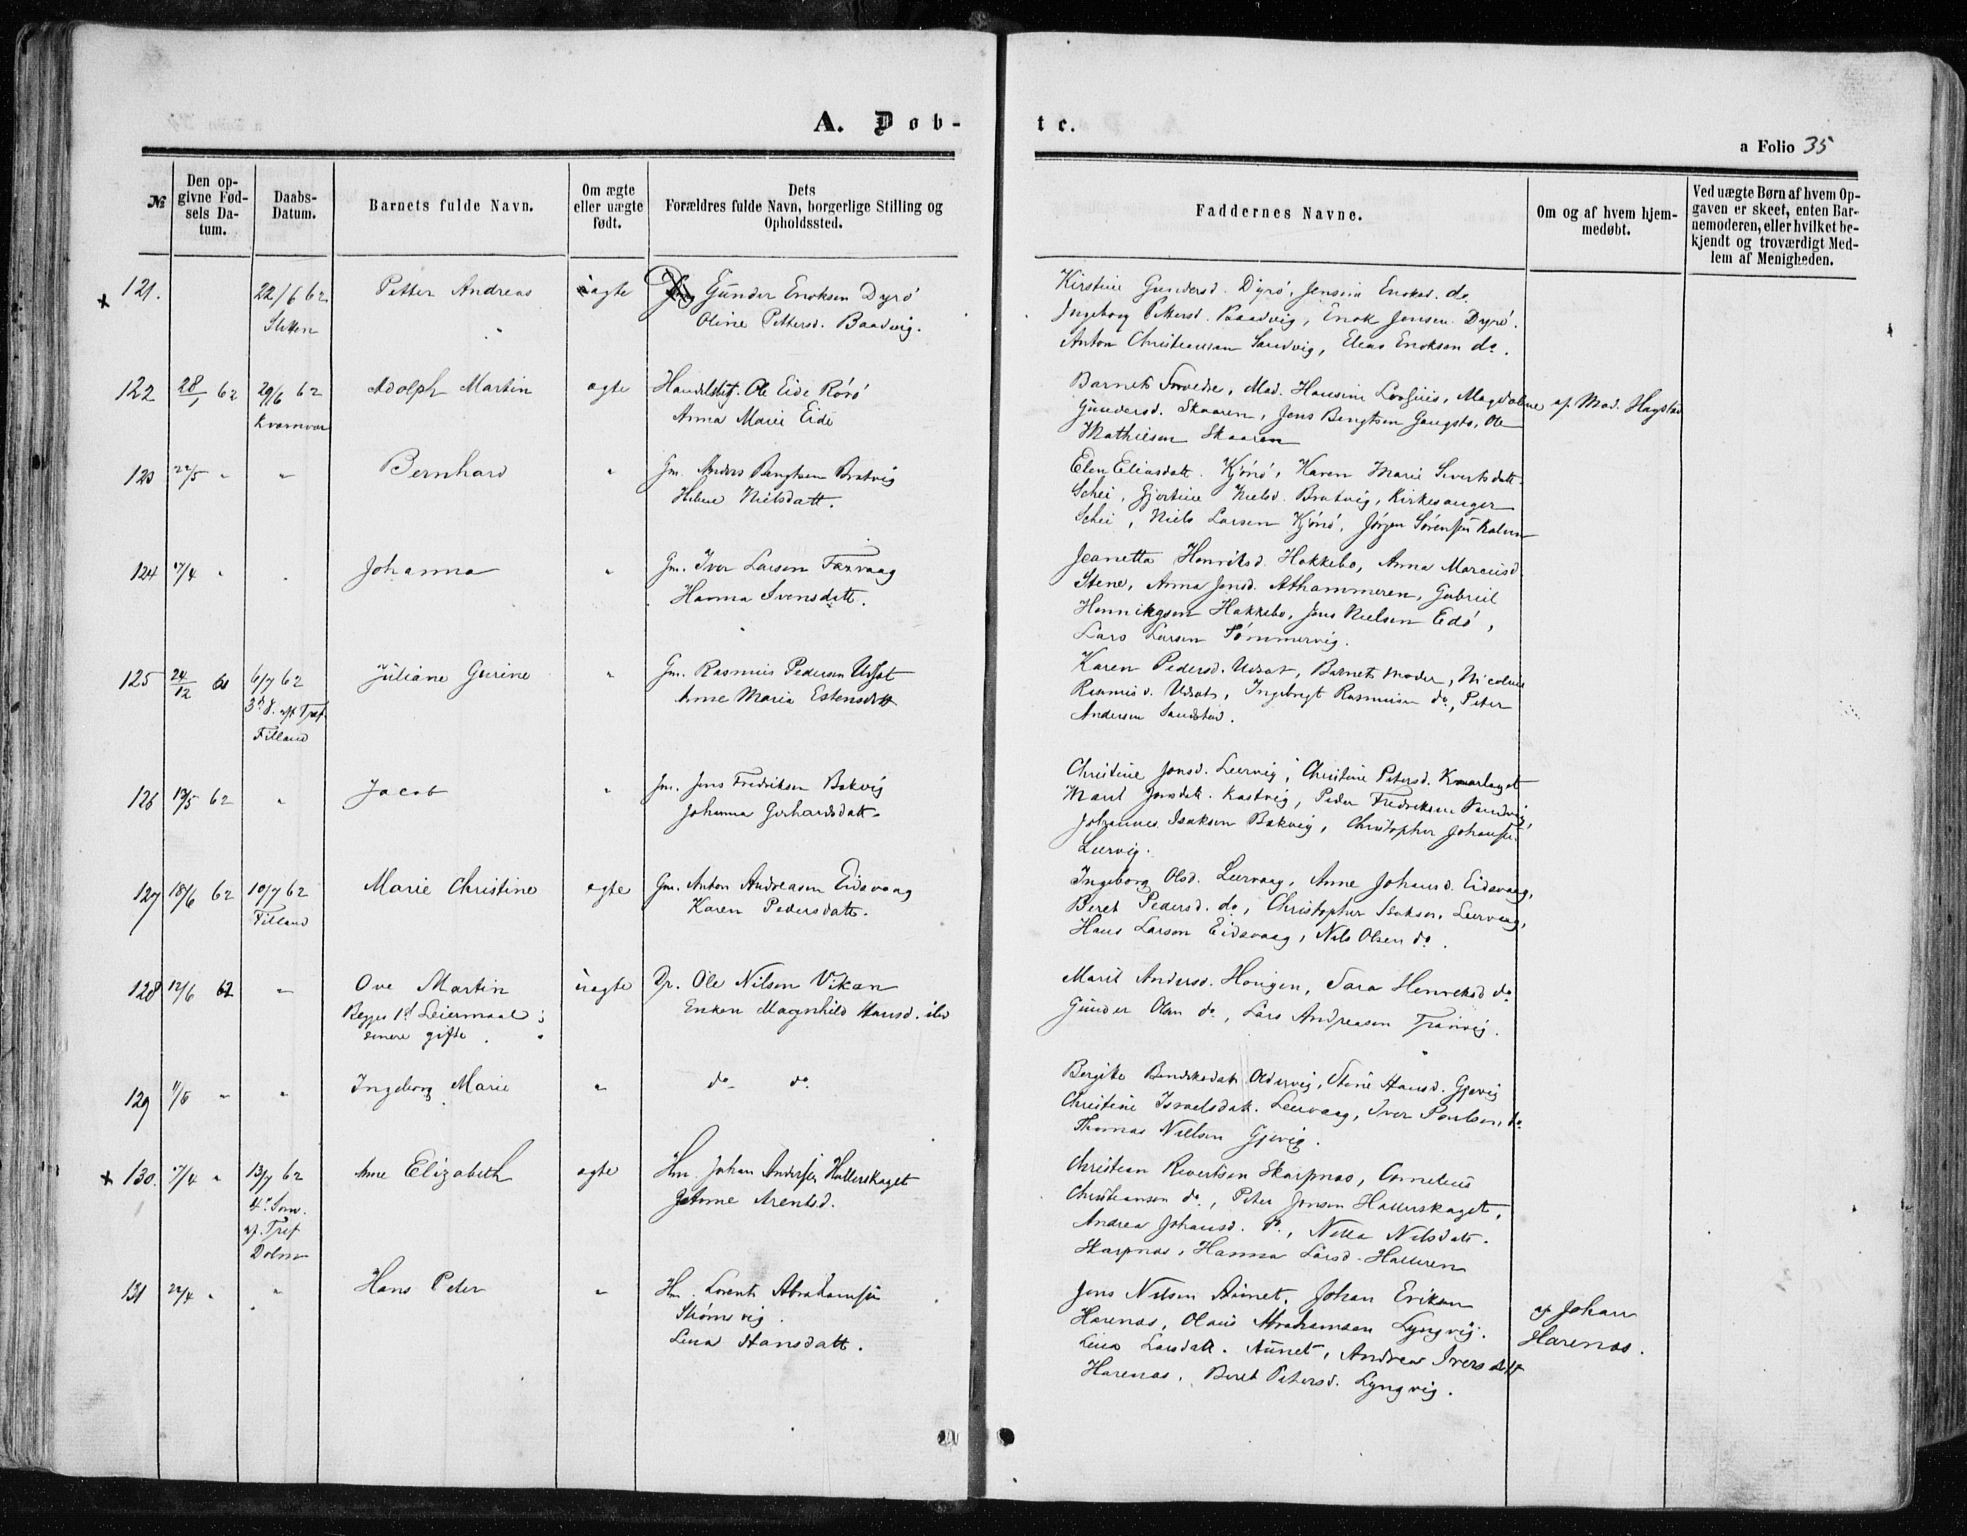 A. Døb-
te.
a Folio 35
№
Den op-
givne Fød-
sels Da-
tum.
Daabs-
Datum.
Barnets fulde Navn.
Om ægte
eller uægte
født.
Dets
Forældres fulde Navn, borgerlige Stilling og
Opholdssted.
Faddernes Navne.
Om og af hvem hjem-
medøbt.
Ved uægte Børn af hvem Op-
gaven er skeet, enten Bar-
nemoderen, eller hvilket be-
kjendt og troværdigt Med-
lem af Menigheden.
121. 22/6 62 Petter Andreas uagte Gunder Enoksen Dyrö
Oline Pettersd. Baadvig.
Kirstine Gundersd. Dyrö, Jensine Enoksd. do
Ingeborg Pettersd. Baadvig, Enok Jensen Dyrö.
Anton Christiansen Sandvig, Elias Enoksen do.
122 28/1 62 29/6 62 Adolph Martin ægte Ole Eide Rörö
Kvamvær Anna Marie Eide
Barnets Forældre, Mad. Hansine, Magdalene
Gundersd. Skaaren, Jens Bengtsen, Ole
Mathiesen Skaaren
af Mad. Hagstad
123 22/5 " " Bernhard " Gm. Anders Bengtsen Bratvig
Helene Nielsdatt.
Elen Eliasdatt. Kjönö, Karen Marie Sivertsdatt.
Schei, Gjertine Nielsd. Bratvig, Kirkesanger
Schei, Niels Larsen Kjönö, Jörgen Sörensen
124 17/4 " " Johanna " Gm. Iver Larsen Faxvaag
Hanna Svensdatt.
Jeanetta Henriksd. Hakkebo, Anna Marcusd.
Stene, Anna Jonsd. Athammeren, Gabriel
Hennikgsen Hakkebo, Jens Nielsen Edö,
Lars Larsen Tömmervig.
125 24/12 61 6/7 62 Juliane Gurine " Gm. Rasmus Pedersen Udsat
3d S. eft. Tref. Anne Maria Estensdatt
Filland
Karen Pedersd. Udsat, Barnets Moder, Nicoline
Rasmusd. Udsat, Ingebrigt Rasmusen do, Peter
Andersen Sandstad.
126 13/5 62 " Jacob " Jens Fredriksen Bakvig
Johanna Gerhardsdatt.
Christine Jonsd. Leervig, Christine Petersd.
Marit Jonsdatt. Kastvig, Peder Fredriksen Sandvig,
Johannes Isaksen Bakvig, Christopher Johansen
Leervig.
127 18/6 62 10/7 62 Marie Christine ægte Gm. Anton Andreasen Eidsvaag
Filland Karen Pedersdatt.
Ingeborg Olsd. Leervaag, Anne Johansd. Eidsvaag,
Beret Pedersd. do, Christopher Isaksen Leervaag,
Hans Larsen Eidsvaag, Nils Olsen do.
128 12/6 62 " Ove Martin uægte Dr. Ole Nilsen Vikan
Begges 1d Leiermaal; Enken Magnhild Hansd. ibd
senere gifte.
Marit Andersd. Hougen, Sara Henriksd do
Gunder Olsen do, Lars Andreasen Tranvig.
129 11/6 " " Ingeborg Marie " do do
Bergite Oldervig, Stine Hansd. Gjevig
Christine Israelsdatt. Leervaag, Iver Poulsen do
Thomas Nielsen Gjevig.
130. 17/4 " 13/7 62 Anne Elizabeth ægte Hm Johan Andersen Hallerskaget
4. Sønd. Anne Arentsd.
ef. Tref
Dolmø
Christian Sivertsen Skarpnæs, Cornelius
Christiansen do, Peter Jonsen Hallerskaget,
Andrea Johansd. do, Nella Nilsdatt.
Skarpnæs, Hanna Larsd. Halleren
131 22/4 " " Hans Peter " Hm. Lorents Abrahamsen
Strömsvig.
Lena Hansdatt.
Jens Nilsen Aunet, Johan Eriksen
Harenæs, Olaus Abrahamsen Lyngvig.
Lena Larsdatt. Aunet, Andrea Iversdatt
Harenæs, Beret Petersd. Lyngvig.
af Johan
Harenæs.